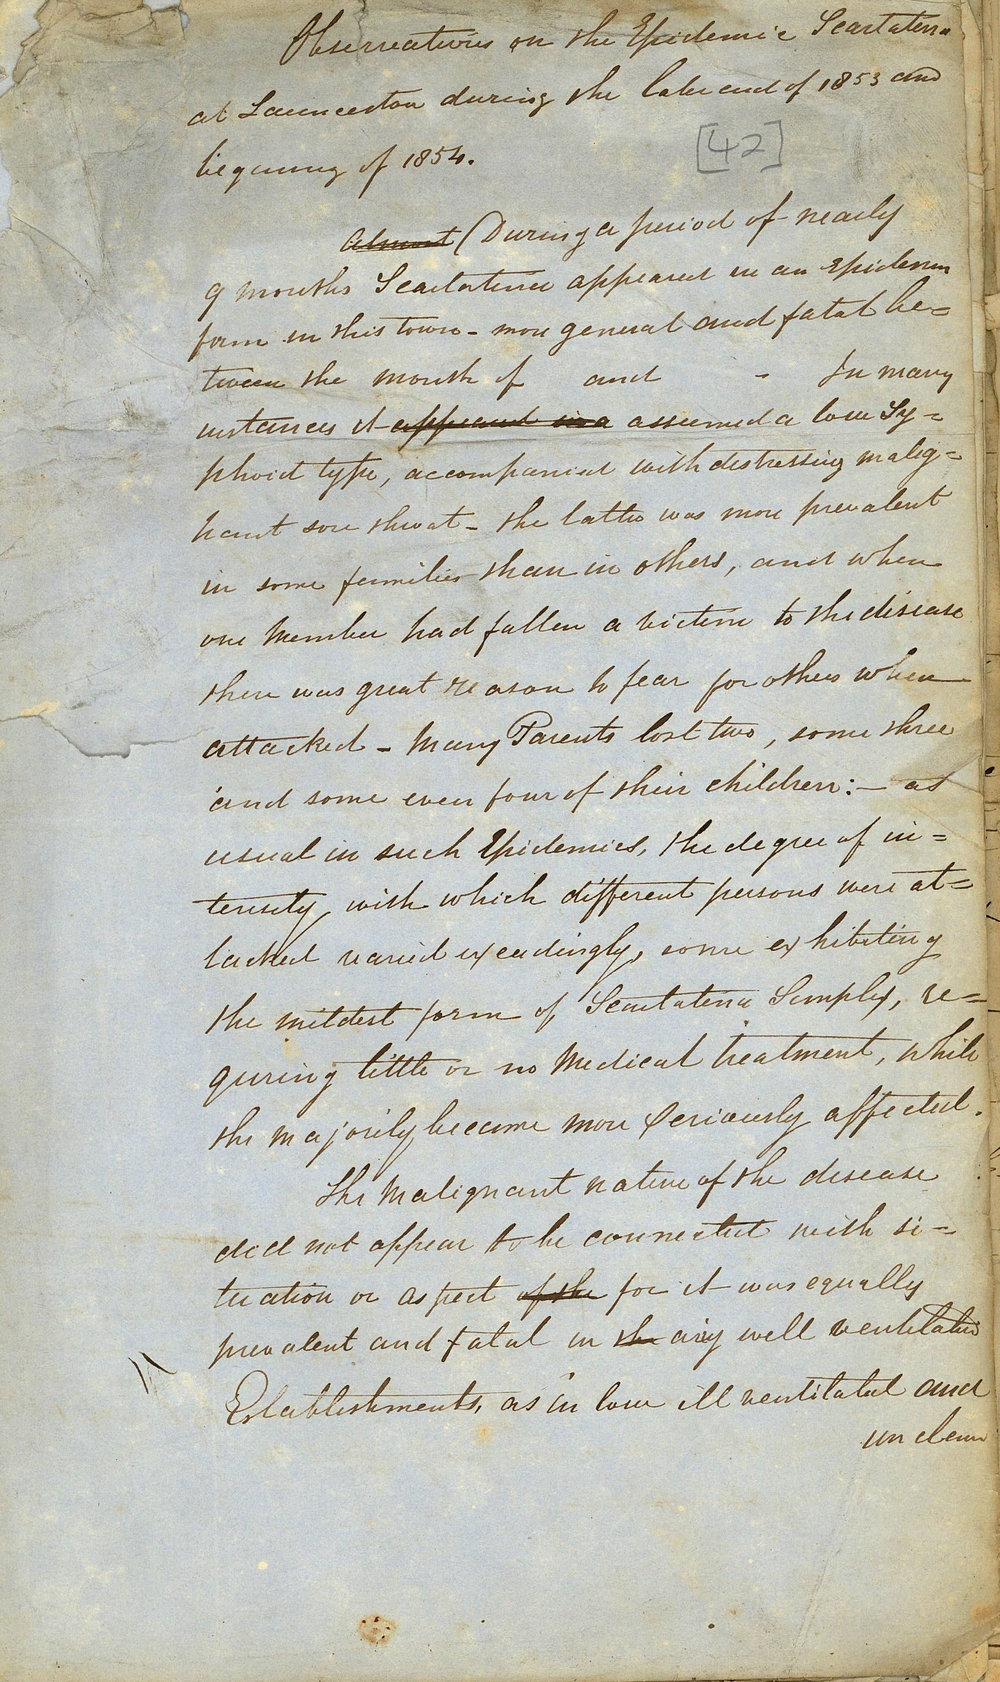 Observations on the Epidemic Scarlatina
at Launceston during the late end of 1853 and
begining of 1854.
[42]
Almost (During a period of nearly
9 months Scarlatina appeared in an Epidemic
form in this town - more general and fatal be=
tween the month of and - In many
instances it appeared in a assumed a low Ty=
phoid type, accompanied with distressing malig=
nant sore throat - the latter was more prevalent
in some families than in others, and when
one Member had fallen a victim to the disease
there was great reason to fear for others when
attacked - Many Parents lost two, some three
and some even four of their children:- as
usual in such Epidemics, the degree of in=
tensity, with which different persons were at=
tacked varied exceedingly, some exhibiting
the mildest form of Scarlatina Simplex, re=
quring little or no Medical treatment, while
the majority became more Seriously affected.
The Malignant nature of the disease
did not appear to be connected with si=
tuation or aspect of the for it was equally
prevalent and fatal in the airy well ventilated
Establishments, as in low ill ventilated and
unclean